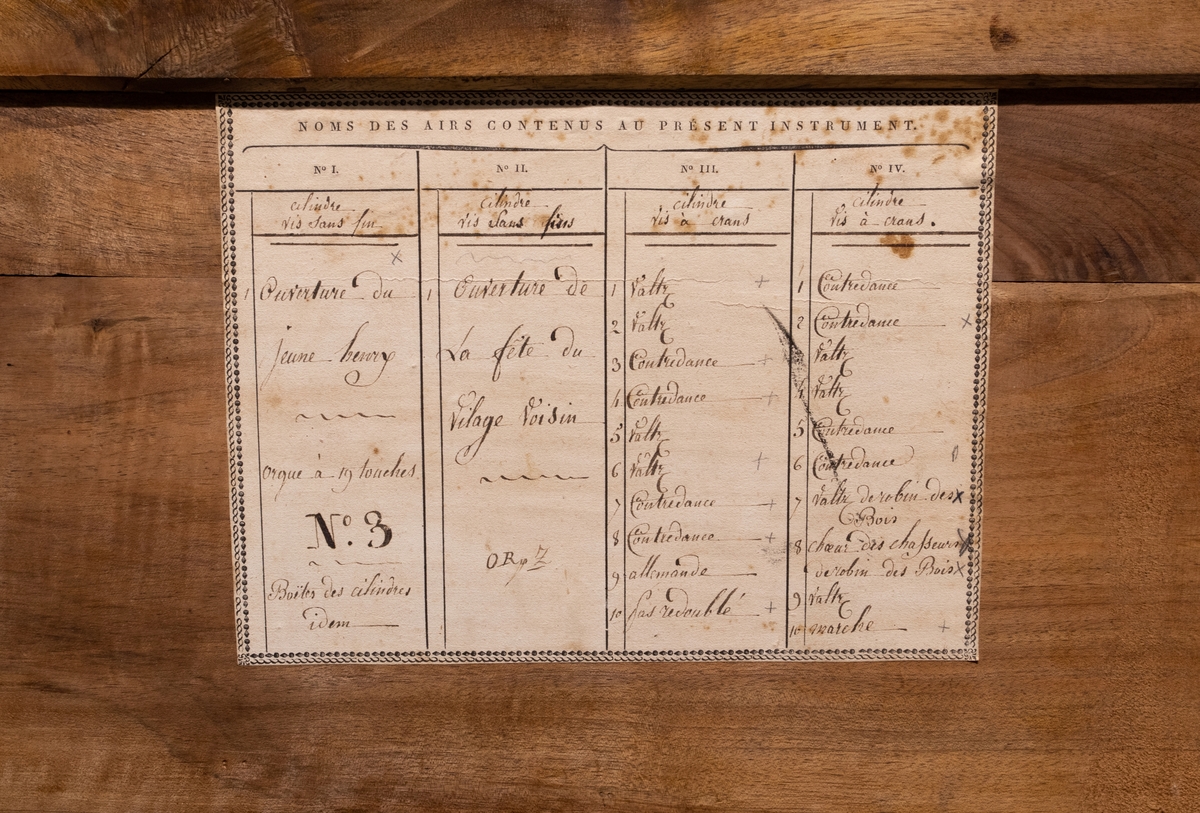 NOMS DES AIRS CONTENUS AU PRÉSENT INSTRUMENT.
Nº I.
cilindre
vis sans fin
x
1 Ouverture du
jeune henry
orgue à 19 touches
Nº. 3
Boites des cilindres
idem
Nº II.
cilindre
vis sans fins
1 Ouverture de
La fête du
Vilage Voisin
Nº III.
cilindre
vis à crans
1 Valtz +
2 Valtz
3 Contredance +
4 Contredance +
5 Valtz
6 Valtz +
7 Contredance +
8 Contredance +
9 allemande
10 pas redoublé +
Nº IV.
cilindre
vis à crans.
1 Contredance
2 Contredance x
Valtz
4 Valtz
5 Contredance
6 Contredance
7 Valtz de robin des x
Bois
8 chœur des chasseurs x
de robin des Bois x
9 Valtz
10 marche +